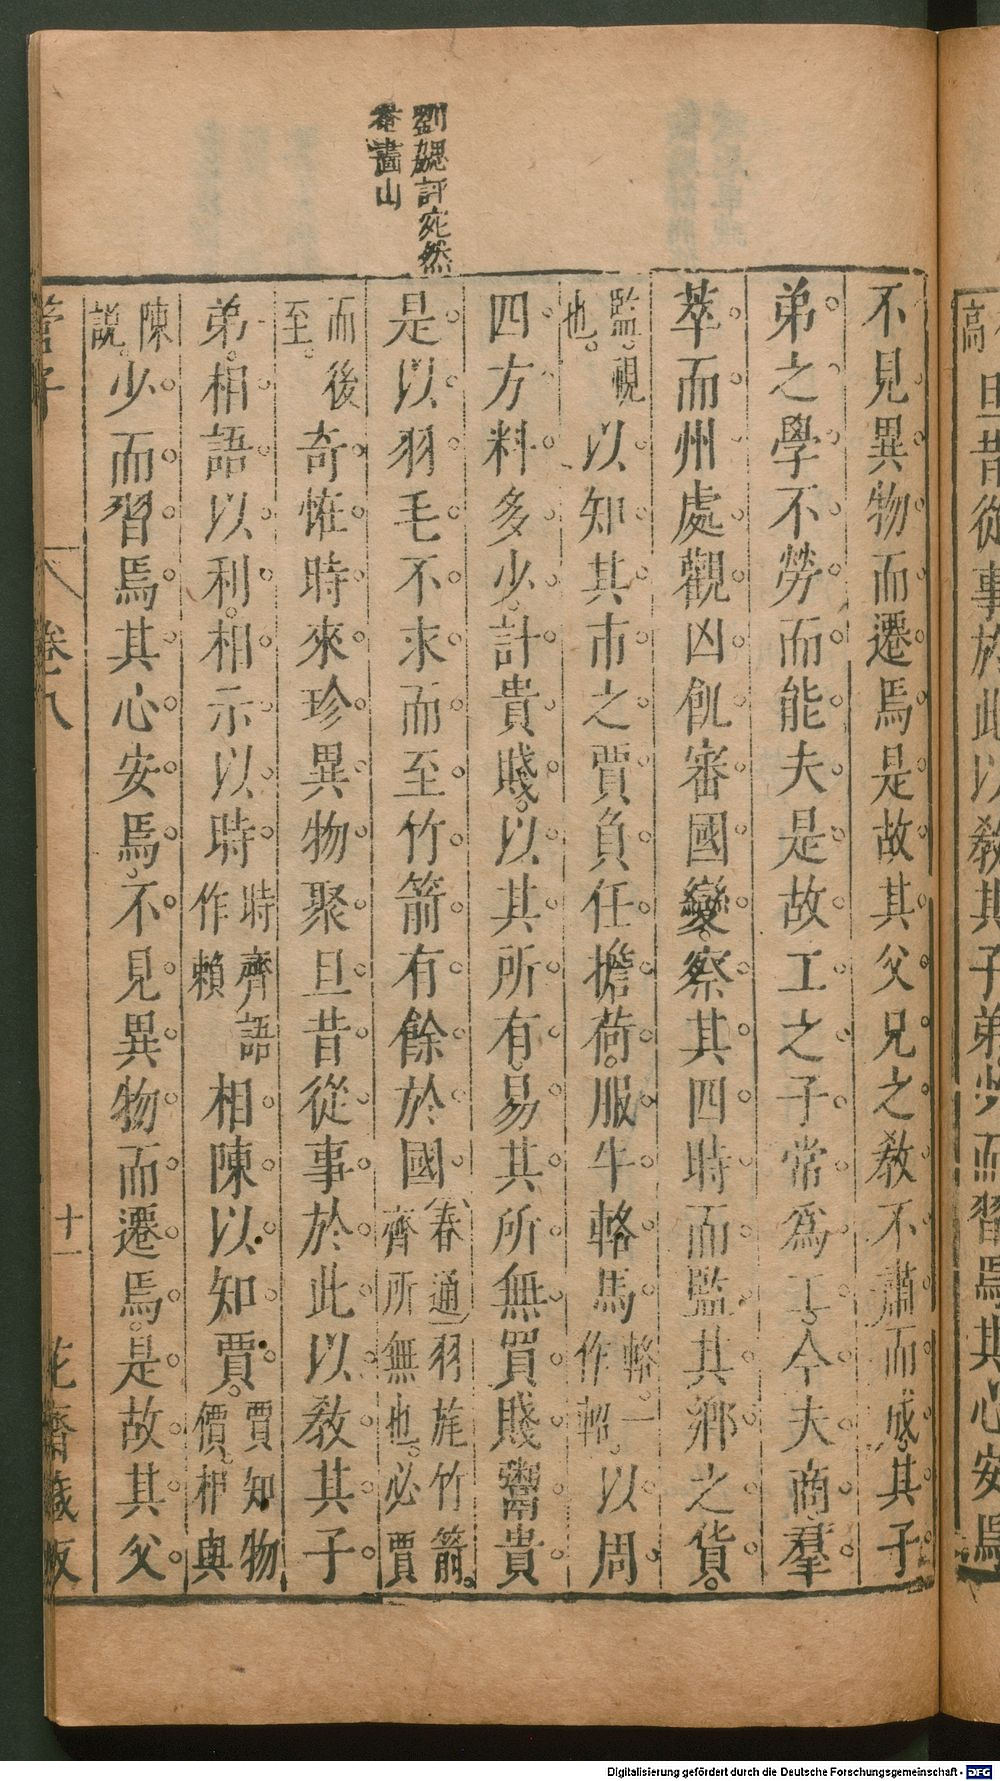 劉勰評宛然
巷畵山
不見異物而遷焉是故其父兄之敎不肅而成其子
弟之學不勞而能夫是故工之子常爲工今夫商羣
萃而州處觀凶飢審國變察其四時而監其鄉之貨
監視也以知其市之賈負任擔荷服牛輅馬輅一作軺以周
四方料多少計貴賤以其所有易其所無買賤鬻貴
是以羽毛不求而至竹箭有餘於國春通羽旄竹箭齊所無也必賈
而後至奇恠時來珍異物聚旦昔從事於此以敎其子
弟相語以利相示以時時齊語作賴相陳以知賈賈知物價相與
陳說少而習焉其心安焉不見異物而遷焉是故其父
管子 卷八 十一 花齋藏板
旦昔從事於此以敎其子弟少而習焉其心安焉
Digitalisierung gefördert durch die Deutsche Forschungsgemeinschaft - DFG